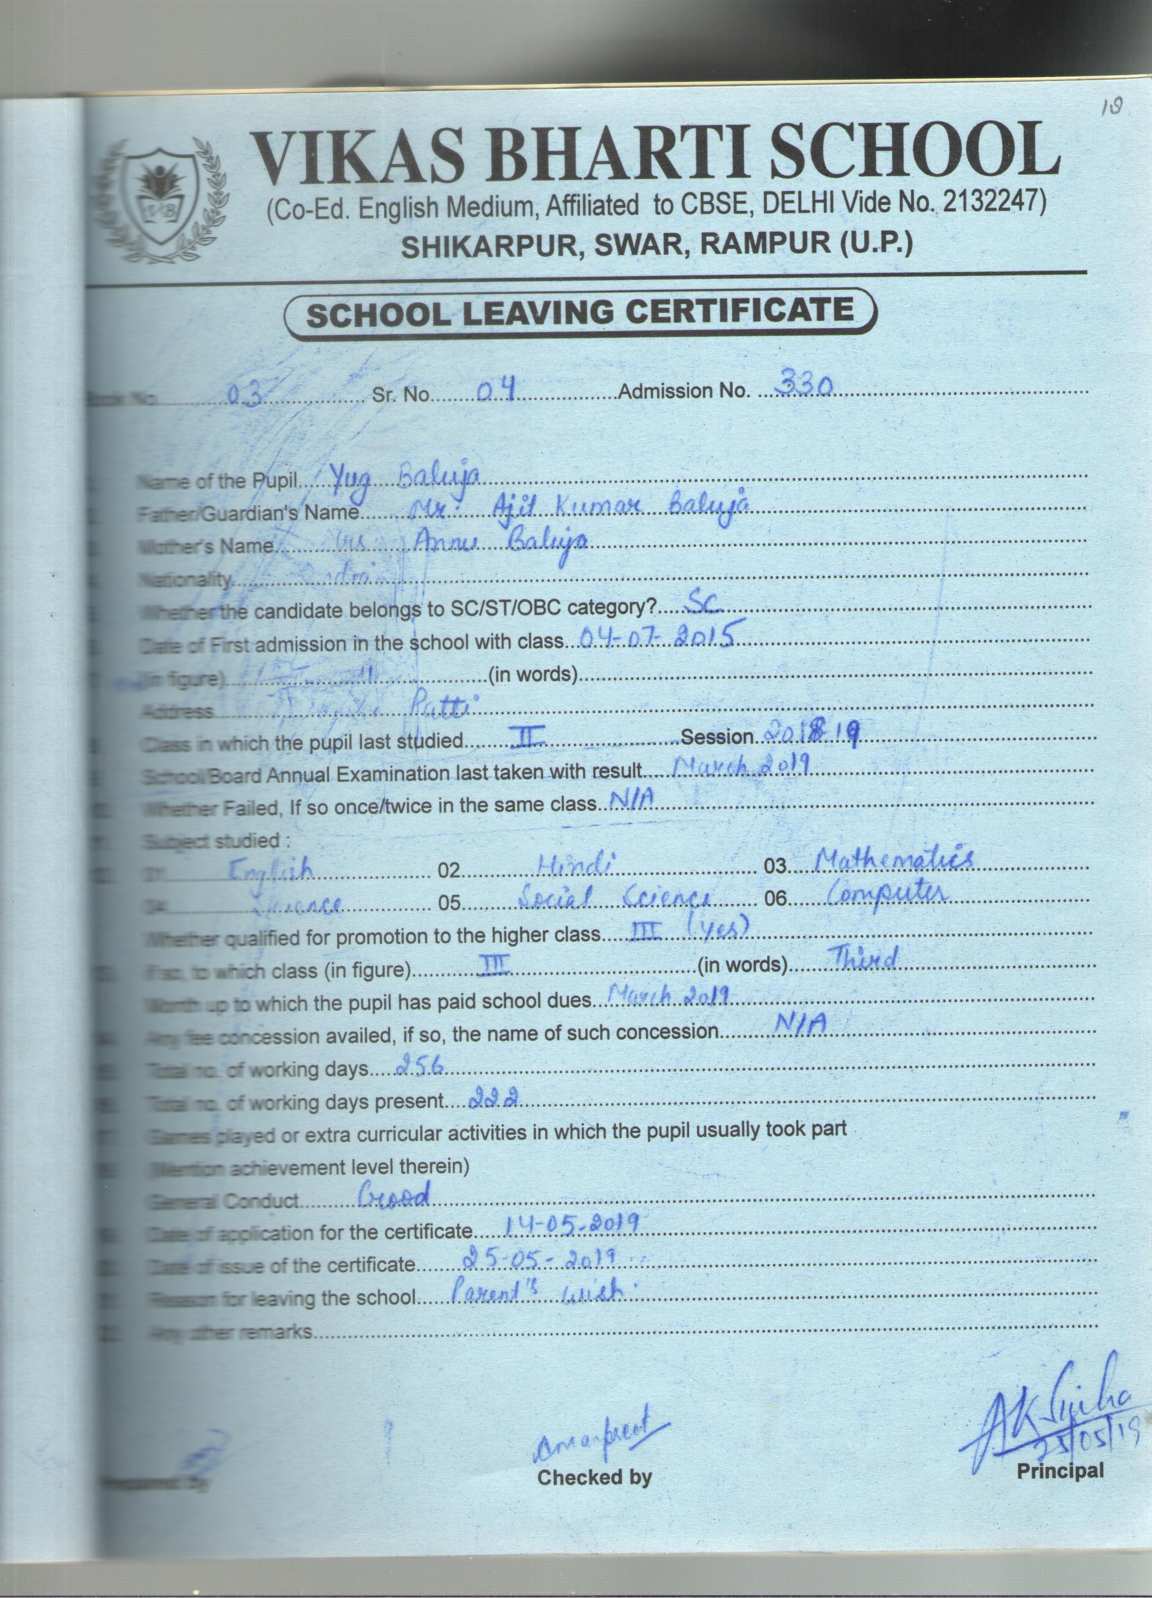 18
VIKAS BHARTI SCHOOL
(Co-Ed. English Medium, Affiliated to CBSE, DELHI Vide No. 2132247)
SHIKARPUR, SWAR, RAMPUR (U.P.)
SCHOOL LEAVING CERTIFICATE
No. 03 Sr. No. 04 Admission No. 330
Name of the Pupil Yug Baluja
Father/Guardian's Name Mr. Ajit Kumar Baluja
Mother's Name Mrs Annu Baluja
Nationality
Whether the candidate belongs to SC/ST/OBC category? SC
Date of First admission in the school with class 04-07-2015
(in figure) (in words)
Address Patti
Class in which the pupil last studied II Session 2018 19
School/Board Annual Examination last taken with result March 2019
Whether Failed, If so once/twice in the same class N/A
Subject studied :
01 English 02 Hindi 03 Mathematics
04 Science 05 Social Science 06 Computer
Whether qualified for promotion to the higher class III (Yes)
If so, to which class (in figure) III (in words) Third
Month up to which the pupil has paid school dues March 2019
Any fee concession availed, if so, the name of such concession N/A
Total no. of working days 256
Total no. of working days present 222
Games played or extra curricular activities in which the pupil usually took part
(Mention achievement level therein)
General Conduct Good
Date of application for the certificate 14-05-2019
Date of issue of the certificate 25-05-2019
Reason for leaving the school Parent's wish.
Any other remarks
Amanpreet
25/05/19
Prepared by Checked by Principal